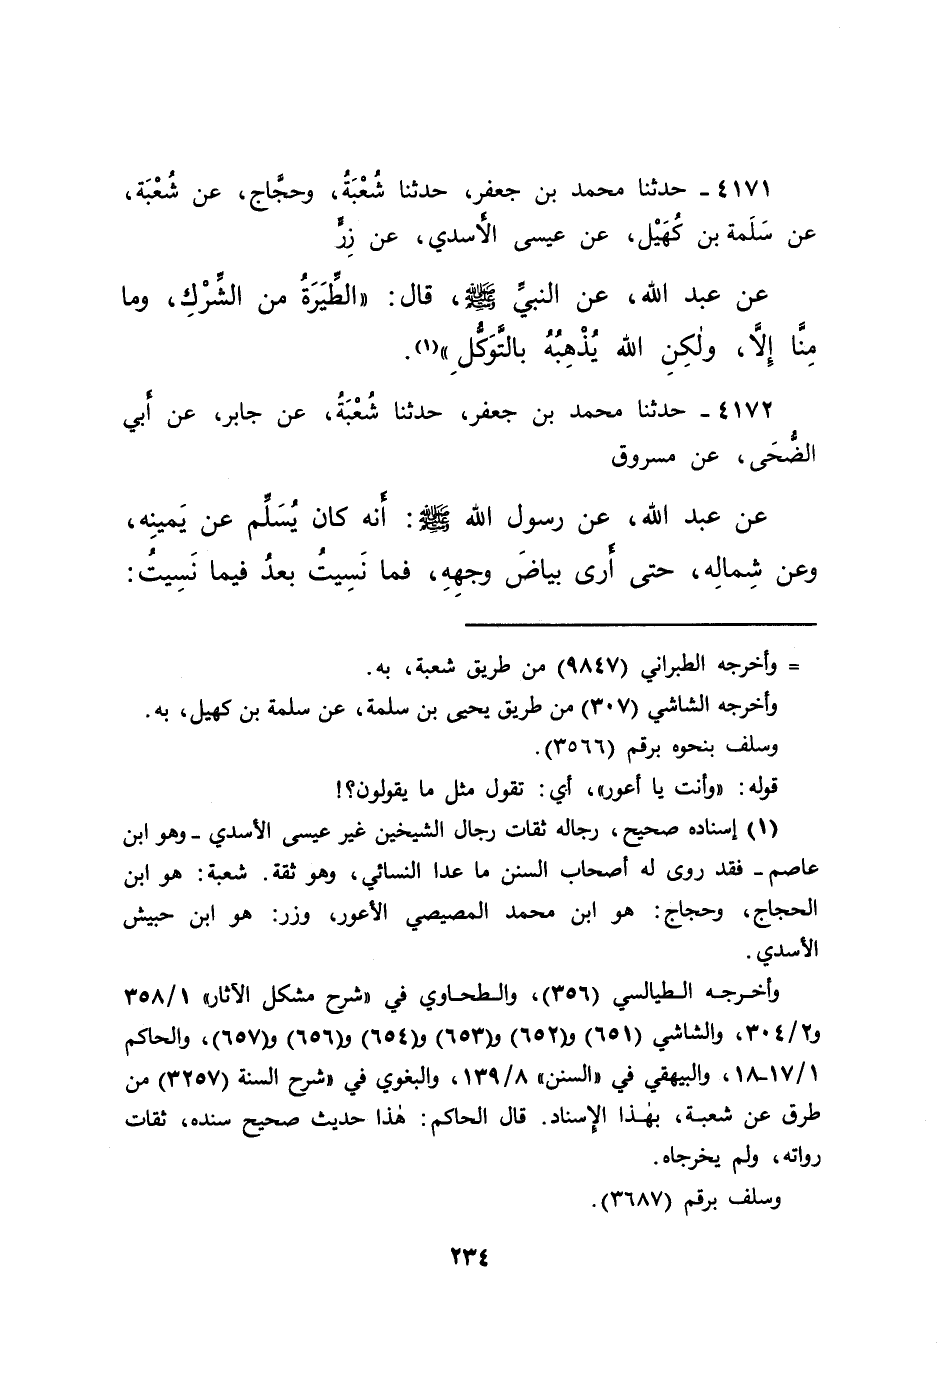 ٤١٧١ ـ حدثنا محمد بن جعفر، حدثنا شُعْبَةُ، وحجَّاج، عن شُعْبَة،
عن سَلَمة بن كُهَيْل، عن عيسى الأَسدي، عن زِرٍّ
عن عبد الله، عن النبيِّ ﷺ، قال: «الطِّيَرَةُ من الشِّرْكِ، وما
مِنَّا إِلَّا، ولٰكِنِ الله يُذْهِبُهُ بالتَّوَكُّلِ»(١).
٤١٧٢ ـ حدثنا محمد بن جعفر، حدثنا شُعْبَةُ، عن جابر، عن أَبي
الضُّحَى، عن مسروق
عن عبد الله، عن رسول الله ﷺ: أَنه كان يُسَلِّم عن يَمينِه،
وعن شِمالِه، حتى أَرى بياضَ وجهِهِ، فما نَسِيتُ بعدُ فيما نَسِيتُ:
= وأخرجه الطبراني (٩٨٤٧) من طريق شعبة، به.
وأخرجه الشاشي (٣٠٧) من طريق يحيى بن سلمة، عن سلمة بن كهيل، به.
وسلف بنحوه برقم (٣٥٦٦).
قوله: «وأنت يا أعور»، أي: تقول مثل ما يقولون؟!
(١) إسناده صحيح، رجاله ثقات رجال الشيخين غير عيسى الأسدي ـ وهو ابن
عاصم ـ فقد روى له أصحاب السنن ما عدا النسائي، وهو ثقة. شعبة: هو ابن
الحجاج، وحجاج: هو ابن محمد المصيصي الأعور، وزر: هو ابن حبيش
الأسدي.
وأخرجه الطيالسي (٣٥٦)، والطحاوي في «شرح مشكل الآثار» ٣٥٨/١
و٣٠٤/٢، والشاشي (٦٥١) و(٦٥٢) و(٦٥٣) و(٦٥٤) و(٦٥٦) و(٦٥٧)، والحاكم
١٧/١ـ١٨، والبيهقي في «السنن» ١٣٩/٨، والبغوي في «شرح السنة (٣٢٥٧) من
طرق عن شعبة، بهٰذا الإِسناد. قال الحاكم: هٰذا حديث صحيح سنده، ثقات
رواته، ولم يخرجاه.
وسلف برقم (٣٦٨٧).
٢٣٤